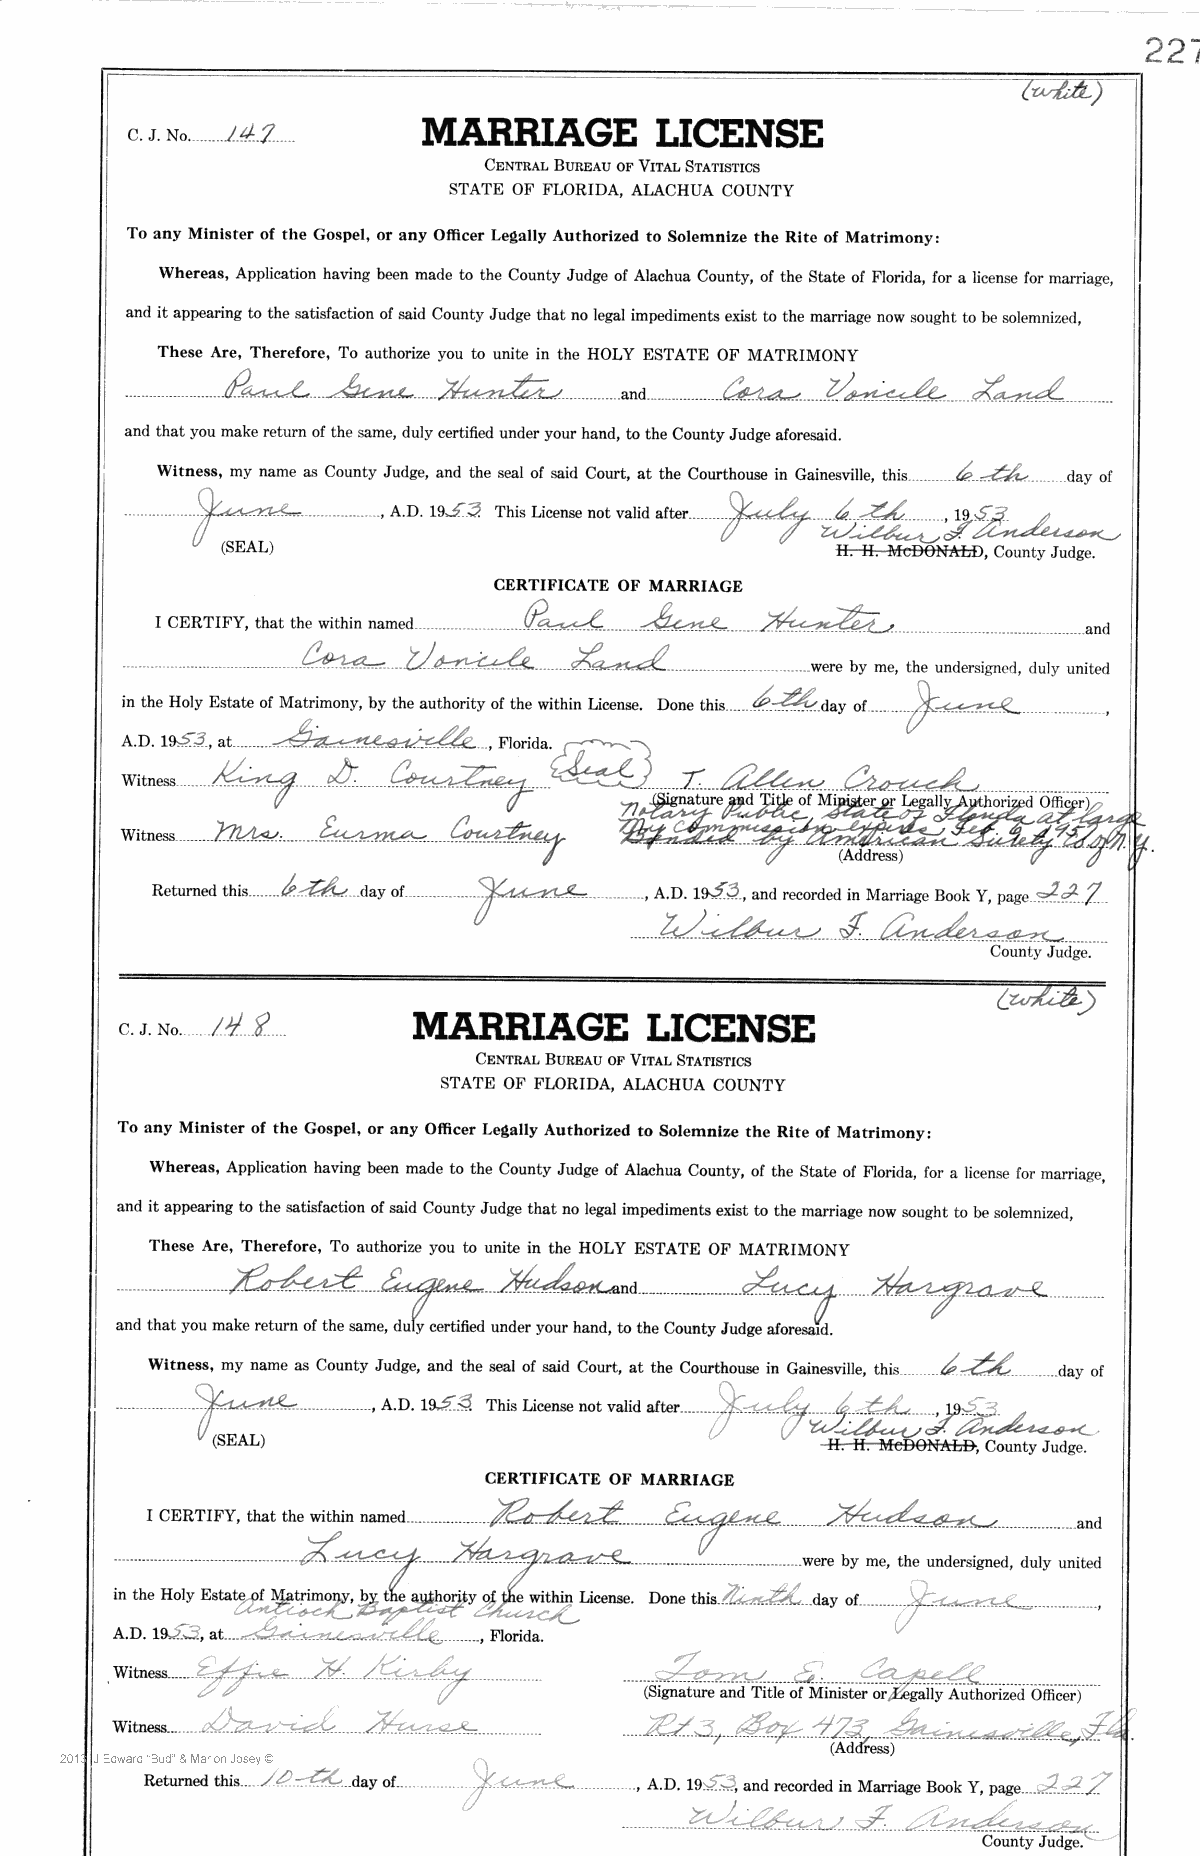 227
(white)
C. J. No. 147
MARRIAGE LICENSE
CENTRAL BUREAU OF VITAL STATISTICS
STATE OF FLORIDA, ALACHUA COUNTY
To any Minister of the Gospel, or any Officer Legally Authorized to Solemnize the Rite of Matrimony:
Whereas, Application having been made to the County Judge of Alachua County, of the State of Florida, for a license for marriage,
and it appearing to the satisfaction of said County Judge that no legal impediments exist to the marriage now sought to be solemnized,
These Are, Therefore, To authorize you to unite in the HOLY ESTATE OF MATRIMONY
Paul Gene Hunter and Cora Voncile Land
and that you make return of the same, duly certified under your hand, to the County Judge aforesaid.
Witness, my name as County Judge, and the seal of said Court, at the Courthouse in Gainesville, this 6th day of
June, A.D. 1953. This License not valid after July 6th, 1953
Wilbur F. Anderson
(SEAL) H. H. McDONALD, County Judge.
CERTIFICATE OF MARRIAGE
I CERTIFY, that the within named Paul Gene Hunter and
Cora Voncile Land were by me, the undersigned, duly united
in the Holy Estate of Matrimony, by the authority of the within License. Done this 6th day of June,
A.D. 1953, at Gainesville, Florida.
Witness King D. Courtney (Seal) T. Allen Crouch
(Signature and Title of Minister or Legally Authorized Officer)
Notary Public, State of Florida at large
My Commission expires Feb. 6, 1957
Witness Mrs. Eurma Courtney Bonded by American Surety Co of N.Y.
(Address)
Returned this 6th day of June, A.D. 1953, and recorded in Marriage Book Y, page 227
Wilbur F. Anderson
County Judge.
(white)
C. J. No. 148
MARRIAGE LICENSE
CENTRAL BUREAU OF VITAL STATISTICS
STATE OF FLORIDA, ALACHUA COUNTY
To any Minister of the Gospel, or any Officer Legally Authorized to Solemnize the Rite of Matrimony:
Whereas, Application having been made to the County Judge of Alachua County, of the State of Florida, for a license for marriage,
and it appearing to the satisfaction of said County Judge that no legal impediments exist to the marriage now sought to be solemnized,
These Are, Therefore, To authorize you to unite in the HOLY ESTATE OF MATRIMONY
Robert Eugene Hudson and Lucy Hargrave
and that you make return of the same, duly certified under your hand, to the County Judge aforesaid.
Witness, my name as County Judge, and the seal of said Court, at the Courthouse in Gainesville, this 6th day of
June, A.D. 1953. This License not valid after July 6th, 1953
Wilbur F. Anderson
(SEAL) H. H. McDONALD, County Judge.
CERTIFICATE OF MARRIAGE
I CERTIFY, that the within named Robert Eugene Hudson and
Lucy Hargrave were by me, the undersigned, duly united
in the Holy Estate of Matrimony, by the authority of the within License. Done this Ninth day of June,
Antioch Baptist Church
A.D. 1953, at Gainesville, Florida.
Witness Effie H. Kirby Tom E. Capell
(Signature and Title of Minister or Legally Authorized Officer)
Witness David Hurse Rt 3, Box 473, Gainesville, Fla.
(Address)
2013 J Edward "Bud" & Marion Josey ©
Returned this 10th day of June, A.D. 1953, and recorded in Marriage Book Y, page 227
Wilbur F. Anderson
County Judge.